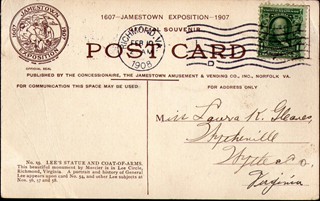 JAMESTOWN
1607 1907
EXPOSITION
OFFICIAL SEAL
1607—JAMESTOWN EXPOSITION—1907
OFFICIAL SOUVENIR
POST CARD
RICHMOND, VA.
FEB 10
1908
D
PUBLISHED BY THE CONCESSIONAIRE, THE JAMESTOWN AMUSEMENT & VENDING CO., INC., NORFOLK VA.
FOR COMMUNICATION THIS SPACE MAY BE USED:
FOR ADDRESS ONLY
Miss Laura K. Gleaves,
Wytheville
Wythe Co.
Virginia
No. 19. LEE'S STATUE AND COAT-OF-ARMS.
This beautiful monument by Mercier is in Lee Circle,
Richmond, Virginia. A portrait and history of General
Lee appears upon card No. 54, and other Lee subjects at
Nos. 36, 37 and 58.